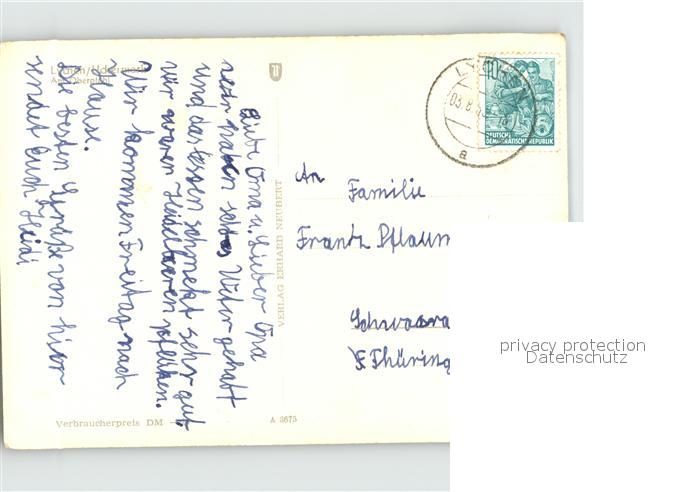 Lychen/Uckermark
Am Oberpfuhl
Liebe Oma u. Lieber Opa
wir haben schönes Weter gehabt
und das Essen schmekt sehr gut.
wir waren Heidelbeeren pflüken.
Wir kommen Freitag nach
Hause.
Die besten Grüße von hier
sendet Euch Heidi
Verbraucherpreis DM
A 3675
VERLAG ERHARD NEUBERT
LYCHEN
03.8.
a
10
DEUTSCHE
DEMOKRATISCHE REPUBLIK
An Familie
Frantz Pflaum
Schwaara
Thüring
privacy protection
Datenschutz